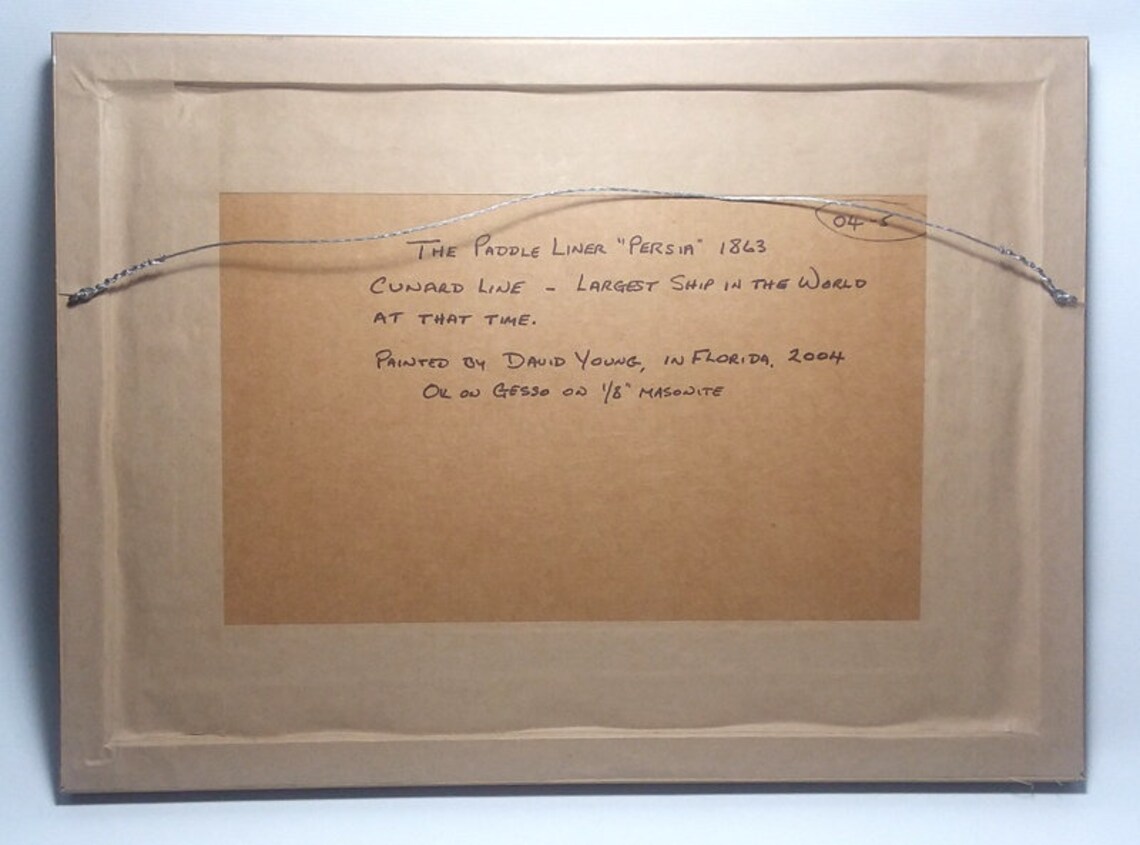 04-5
THE PADDLE LINER "PERSIA" 1863
CUNARD LINE - LARGEST SHIP IN THE WORLD
AT THAT TIME.
PAINTED BY DAVID YOUNG, IN FLORIDA, 2004
OIL ON GESSO ON 1/8" MASONITE